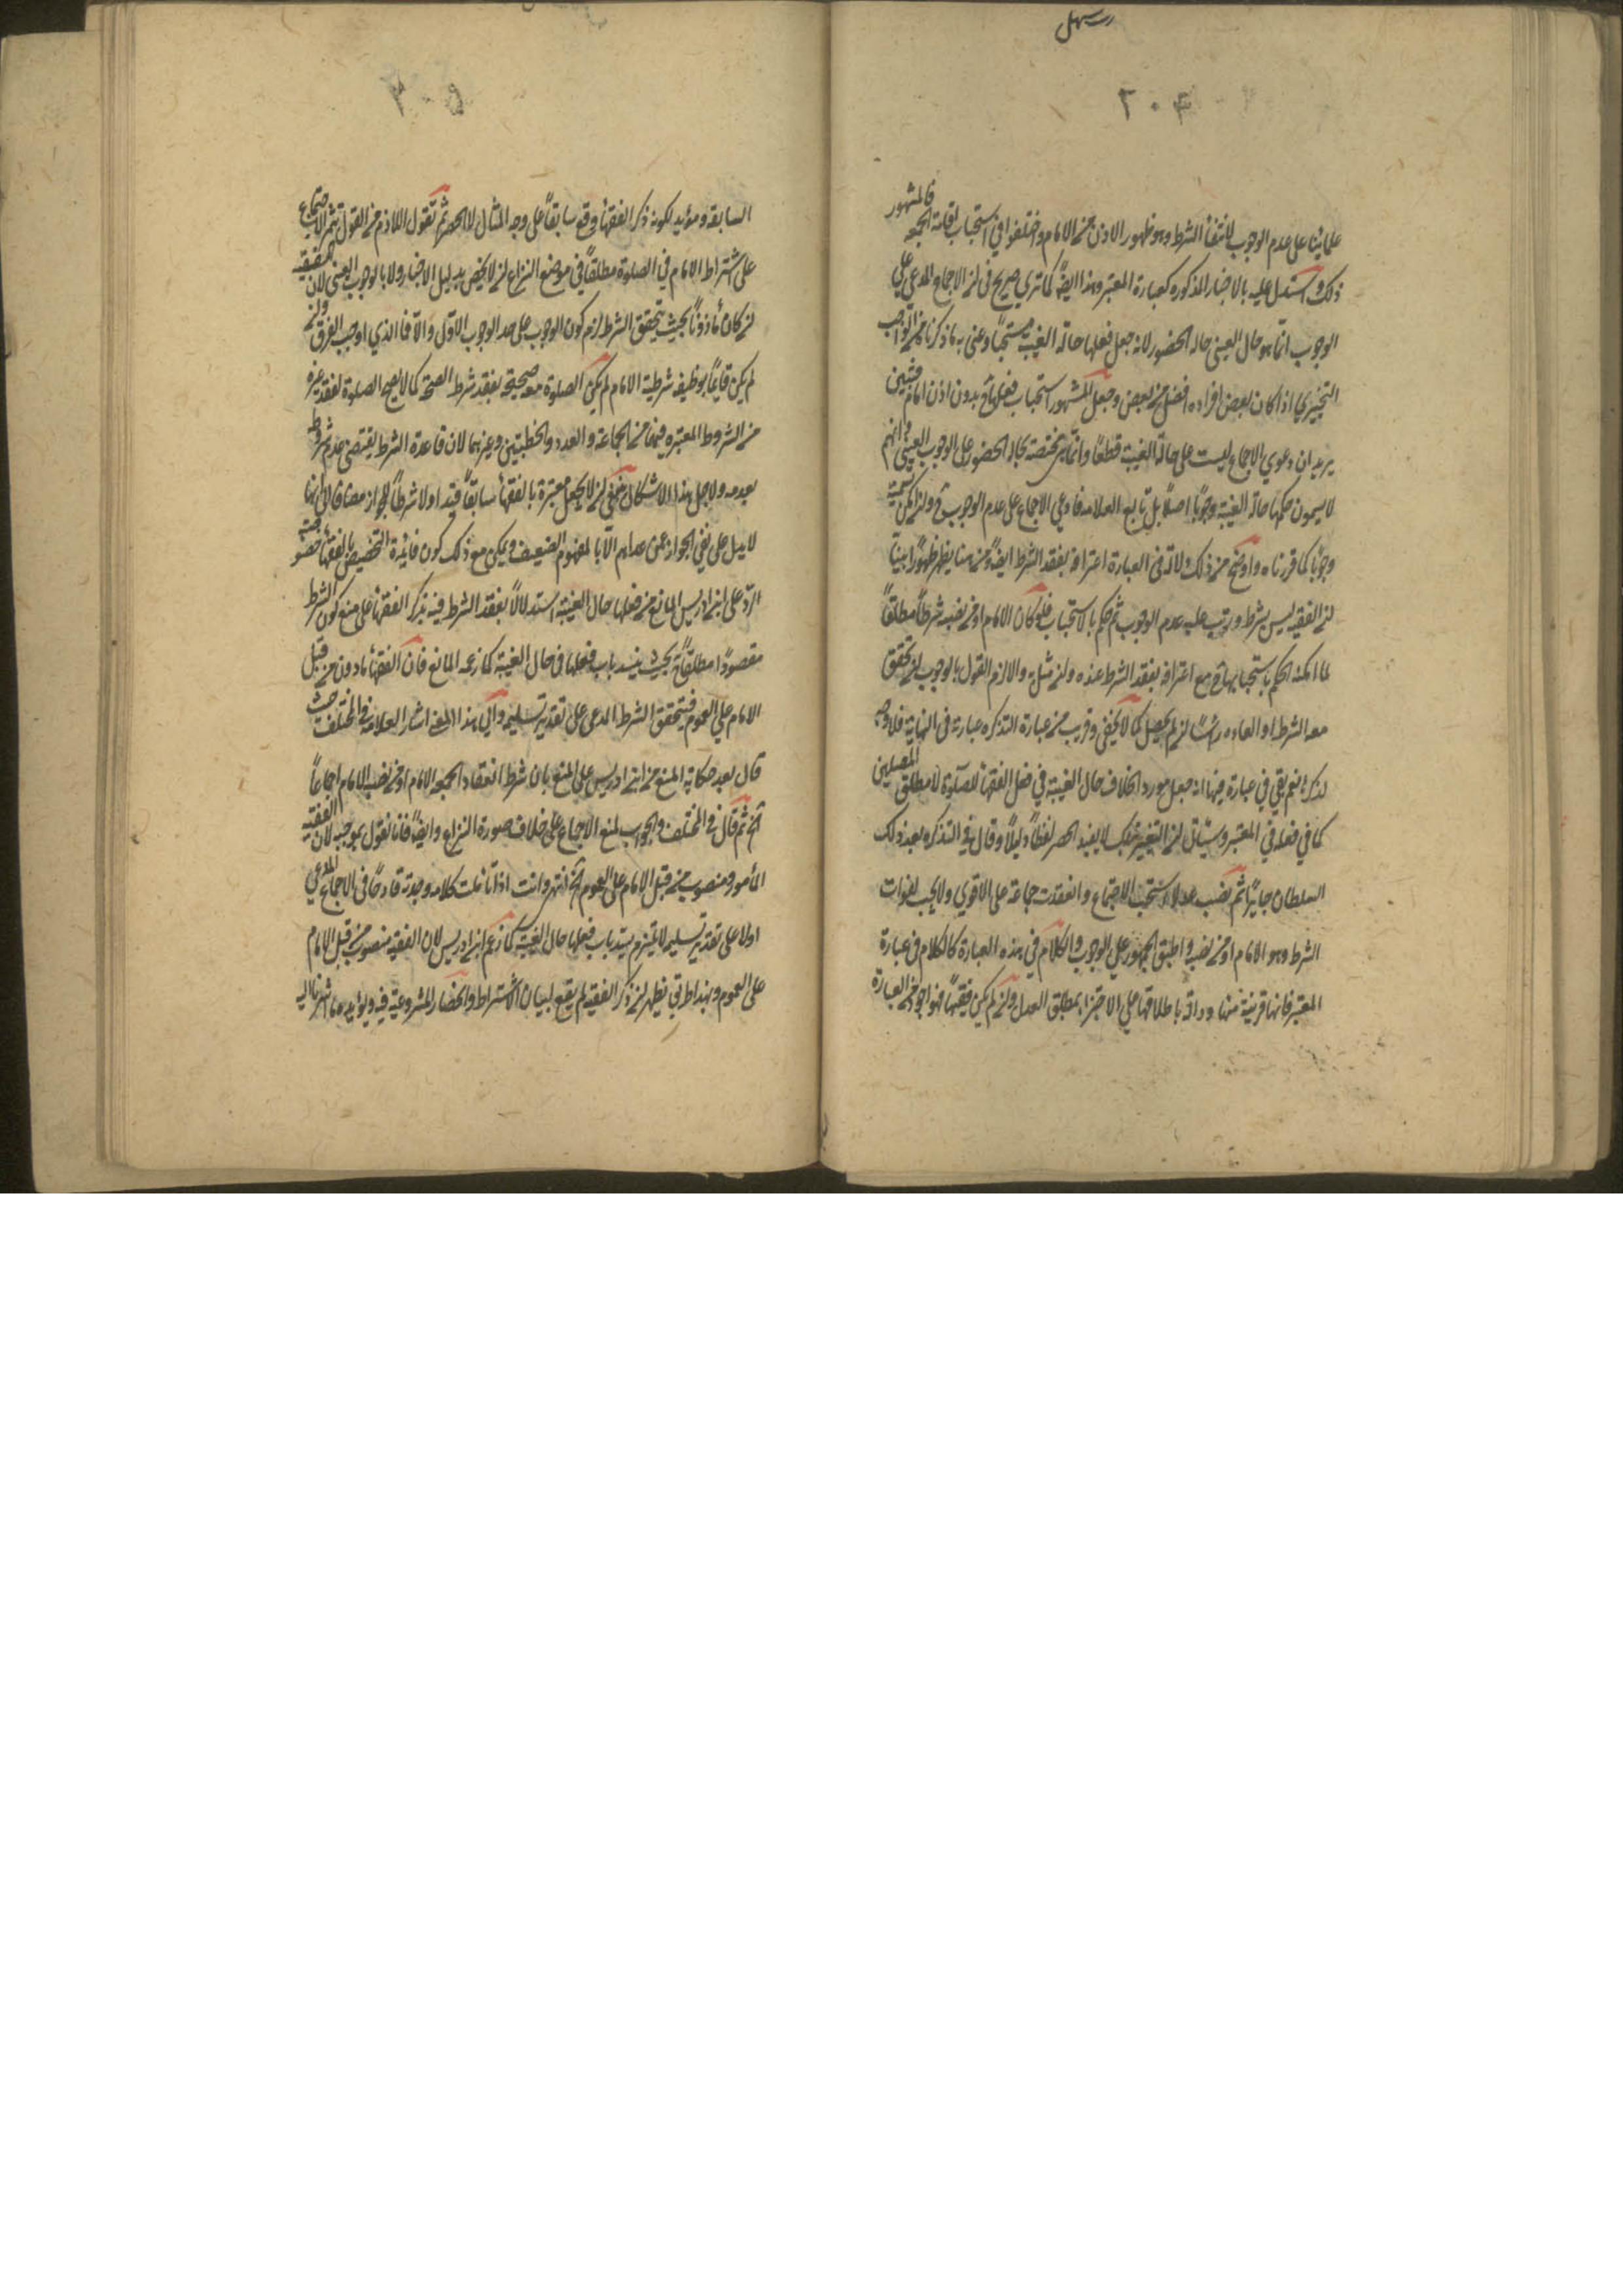 علمائنا على عدم الوجوب لانتفاء الشرط وهو ظهور الاذن من الامام واختلفوا في استحباب اقامة الجمعه فالمشهور
ذلك واستدل عليه بالاخبار المذكوره كعبارة المعتبر وهذا ايضًا كما تري صريح في ان الاجماع المدعي علي
الوجوب انما هو حال العيني حاله الحضور لانه جعل فعلها حالة الغيبة مستحبًا وعنى به ما ذكرناه من الواجب
التخييري اذا كان بعض افراده افضل من بعض وجعل المشهور استحباب فعلها ح بدون اذن امام فتبين
يريد ان دعوي الاجماع ليست على حالة الغيبة قطعًا وانما هي مختصة بحاله الحضور على الوجوب العيني وانهم
لا يسمون حكمها حالة الغيبة وجوبًا اصلًا بل تابع العلامه فادعي الاجماع على عدم الوجوب ح وان لم يكن تسميته
وجوبًا كما قررناه واوضح من ذلك دلالة في العبارة اعترافه بفقد الشرط ايضًا ومن هنا يظهر ظهورًا بينًا
ان الفقيه ليس بشرط ورتب عليه عدم الوجوب ثم حكم بالاستحباب فلو كان الامام او من نصبه شرطًا مطلقًا
لما امكنه الحكم باستحبابها ح مع اعترافه بفقد الشرط عنده وان مثله والا لزم القول بالوجوب ان تحقق
معه الشرط او العادة راسًا ان لم يحصل كما لا يخفي وقريب من عبارة التذكره عبارته في النهاية فلا وجه
لذكره نعم بقي في عبارة فيها انه جعل مورد الخلاف حال الغيبة في فعل الفقهاء للصلوة لا مطلق المصلين
كما في فعله في المعتبر وسيأتي ان التعبير بذلك لا يفيد الحصر لفظًا ودليلًا وقال في التذكره بعد ذلك
السلطان جايرًا ثم نصب عدلا استحب الاجتماع وانعقدت جماعة على الاقوي ولا يجب لفوات
الشرط وهو الامام او من نصبه واطبق الجمهور علي الوجوب والكلام في هذه العبارة كالكلام في عبارة
المعتبر فانها قريبة منها ودالة باطلاقها على الاجتزاء بمطلق العدل وان لم يكن فقيهًا فهو اجود من العبارة
السابقه ومؤيد لكون ذكر الفقهاء وقع سابقًا على وجه المثال لا الحصر ثم نقول اللازم من القول بثمر الاجتماع
على اشتراط الامام في الصلوة مطلقًا في موضع النزاع ان لا يخص بدليل الاخبار ولا بالوجوب العيني لان الفقيه
ان كان مأذونًا بحيث يتحقق الشرط لزم كون الوجوب على حد الوجوب الاول والا فما الذي اوجب الفرق وان
لم يكن قايمًا بوظيفه شرطية الامام لم يكن الصلوة معه صحيحة بفقد شرط الصحة كما لا يصح الصلوة لفقد غيره
من الشروط المعتبره فيها من الجماعة والعدد والخطبتين وغيرهما لان قاعدة الشرط يقتضي عدم مشروطه
بعدمه ولاجل هذا الاشكال ينبغي ان لا يجعل معتبرة بالفقهاء سابقًا قيدا ولا شرطًا للجواز مضافا الى انها
لا يدل على نفي الجواز عمن عداهم الا بالمفهوم الضعيف ويمكن مع ذلك كون فائدة التخصيص بالفقهاء
الرد على ابن ادريس المانع من فعلها حال الغيبة استدلالًا بفقد الشرط فنبه بذكر الفقهاء على منع كون الشرط
مفقودًا مطلقًا بحيث ينسد باب فعلها في حال الغيبة كما زعمه المانع فان الفقهاء مأذون من قبل
الامام علي العموم فيتحقق الشرط المدعى على تقدير تسليمه والي هذا المعنى اشار العلامه في المختلف حيث
قال بعد حكاية المنع من ابن ادريس على المنع بان شرط انعقاد الجمعة الامام او من نصبه الامام اجماعًا
الخ ثم قال في المختلف والجواب لمنع الاجماع على خلاف صورة النزاع وايضًا فانا نقول بموجبه لان الفقيه
المأمور منصوب من قبل الامام على العموم الخ انتهى وانت اذا تأملت كلامه وجدته قادحًا في الاجماع المدعي
اولا على تقدير تسليمه لا يلتزم بسد باب فعلها حال الغيبة كما زعم ابن ادريس لان الفقيه منصوب من قبل الامام
على العموم وبهذا طريق يظهر ان ذكر الفقيه لم يقع لبيان الاشتراط وانحصار المشروعية فيه ويؤيده ما اشرنا اليه